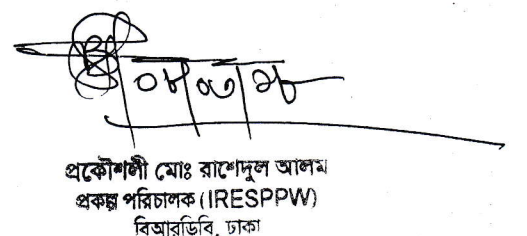 ০৮/০৩/২৮
প্রকৌশলী মোঃ রাশেদুল আলম
প্রকল্প পরিচালক (IRESPPW)
বিআরডিবি, ঢাকা